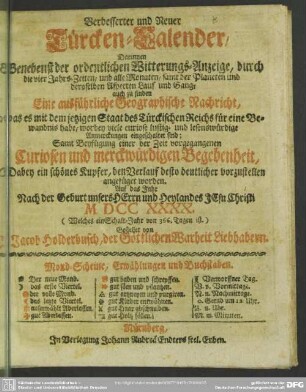 Verbesserter und Neuer
Türcken-Calender,
Darinnen
Benebenst der ordentlichen Witterungs-Anzeige, durch
die vier Jahrs-Zeiten, und alle Monaten, samt der Planeten und
derselben Aspecten Lauf und Gang,
auch zu finden
Eine ausführliche Geographische Nachricht,
was es mit dem jetzigen Staat des Türckischen Reichs für eine Be-
wandnis habe, worbey viele curiose lustig- und lesenswürdige
Anmerckungen eingeschaltet sind;
Samt Beyfügung einer vor Zeit vorgegangenen
Curiosen und merckwürdigen Begebenheit,
Dabey ein schönes Kupfer, den Verlauf desto deutlicher vorzustellen
angefüget worden.
Auf das Jahr
Nach der Geburt unsers HErrn und Heylandes JEsu Christi
M DCC XXXX.
( Welches ein Schalt-Jahr von 366. Tagen ist. )
Gestellet von
Jacob Holderbusch, der Göttlichen Warheit Liebhabern.
Mond-Scheine, Erwählungen und Buchstaben.
Der neue Mond.
das erste Viertel.
der volle Mond.
das letzte Viertel.
auserwählt Aderlassen.
gut Aderlassen.
gut baden und schröpffen.
gut säen und pflantzen.
gut artzneyen und purgieren.
gut Kinder entwöhnen.
gut Holtz abhauen.
gut Holtz fällen.
Verworffner Tag.
V. v. Vormittags.
N. n. Nachmittags.
U. u. Uhr.
M. m. Minuten.
Nürnberg,
In Verlegung Johann Andreä Endters seel. Erben.